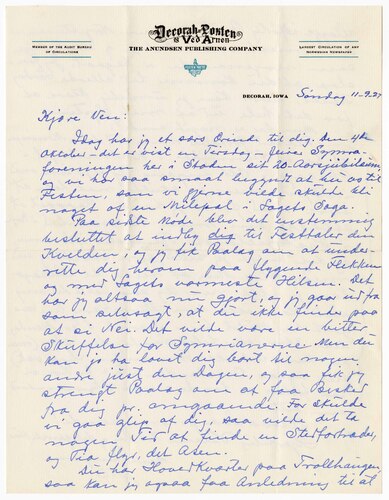 Decorah-Posten
& Ved Arnen
THE ANUNDSEN PUBLISHING COMPANY
MEMBER OF THE AUDIT BUREAU
OF CIRCULATIONS
LARGEST CIRCULATION OF ANY
NORWEGIAN NEWSPAPER
DECORAH, IOWA
Søndag 11-9.27
Kjære Ven:
Idag har jeg et særs Ærinde til dig. Den 4de
Oktober - det er vist en Tirsdag - feirer Symra-
foreningen her i Staden sit 20-Aarsjubilæum
og vi har saa smaat begyndt at
Festen, som vi gjerne vilde skulde bli
noget af en Milepæl i Lagets Saga.
Paa sidste Møde blev det enstemmig
besluttet at indby dig til Festtaler den
Kvelden, og jeg fik Paalæg om at under-
rette dig herom paa flygende Flekken
og med Lagets varmeste Hilsen. Det
har jeg altsaa nu gjort, og jeg gaar ud fra
som selvsagt, at du ikke finder paa
at si Nei. Det vilde være en bitter
Skuffelse for Symraerne. Men du
kan jo ha lovet dig bort til nogen
andre just den Dagen, og saa fik jeg
strengt Paalæg om at faa Besked
fra dig pr. omgaaende. For skulde
vi gaa glip af dig, saa vilde det ta
nogen Tid at finde en Stedfortræder,
og Tia flyr, det Asen.
Du har Hovedkvarter paa Trollhaugen,
saa kan jeg ogsaa faa Anledning til at